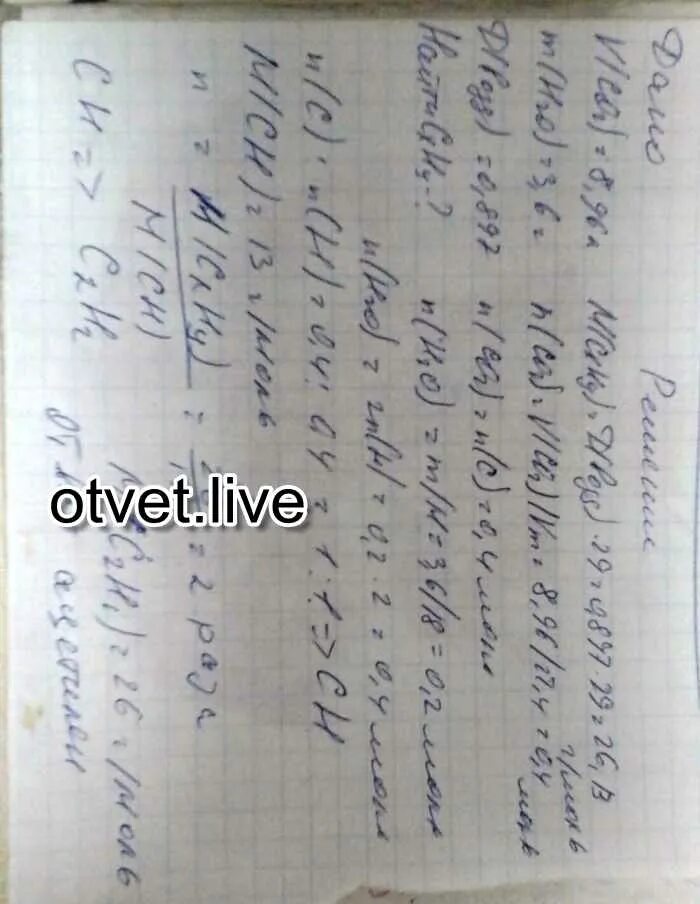 Дано Решение
V(CO2) = 8,96л M(CxHy) = D(возд) · 29 = 0,897 · 29 = 26,13 г/моль
m(H2O) = 3,6г n(CO2) = V(CO2)/Vm = 8,96/22,4 = 0,4 моль
D(возд) = 0,897 n(CO2) = n(C) = 0,4 моль
Найти CxHy-? n(H2O) = m/M = 3,6/18 = 0,2 моль
n(H2O) = 2n(H) = 0,2 · 2 = 0,4 моль
n(C) : n(H) = 0,4 : 0,4 = 1 : 1 => CH
M(CH) = 13 г/моль
n = M(CxHy) / M(CH) = = 2 раза
CH => C2H2 C2H2) = 26 г/моль
ацетилен
otvet.live